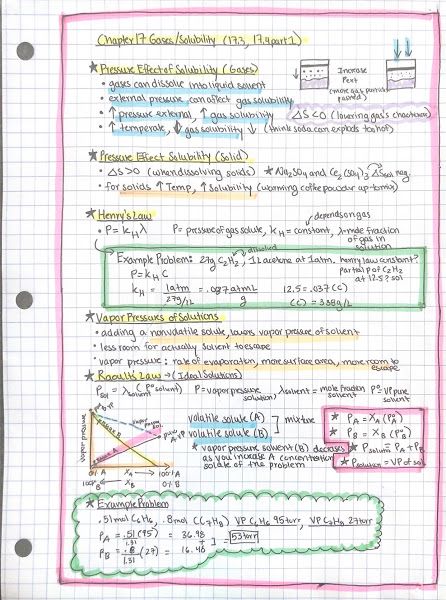 Chapter 17 Gases/Solubility (17.3, 17.4 part 1)
★ Pressure Effect of Solubility (Gases)
• gases can dissolve into liquid solvent
• external pressure, can affect gas solubility
• ↑ pressure external, ↑ gas solubility
• ↑ temperate, ↓ gas solubility ↓ (think soda can explods too hot)
Increase
Pext
(more gas particles
pushed)
ΔS<0 (lowering gas's chaoticness)
★ Pressure Effect Solubility (Solid)
• ΔS>0 (when dissolving solids) ★ Na2SO4 and Ce2(SO4)3 ΔSsol neg.
• for solids ↑ Temp, ↑ Solubility (warming coffee powder up to mix)
★ Henry's Law
depends on gas
• P = kHλ P = pressure of gas solute, kH = constant, λ=mole fraction
of gas in
solution
Example Problem: 27g C2H2, 1L acetone at 1atm. henry law constant?
dissolved
P = kH C
partial p of C2H2
at 12.5? sol
kH = 1atm / 27g/1L = .037 atmL / g
12.5 = .037 (C)
(C) = 338g/L
★ Vapor Pressures of Solutions
• adding a nonvolatile solute, lowers vapor pressure of solvent
• less room for actually solvent to escape
• vapor pressure: rate of evaporation, more surface area, more room to
escape
★ Raoult's Law → (Ideal Solutions)
Psol = λsol (P°solvent) P = vapor pressure solution, λsolvent = mole fraction solvent P° = VP pure solvent
P°B VP
vapor pressure
vapor pressure sol.
pure A VP
0% A XA 100% A
100% B XB 0% B
volatile solute (A)
volatile solute (B)
mixture
★ vapor pressure solvent (B) decreases
as you increase A (concentration)
solute of the problem
★ PA = XA (P°A)
★ PB = XB (P°B)
★ Psolution = PA + PB
★ Psolution = VP of sol
★ Example Problem
.51 mol C6H6, .8mol (C7H8) VP C6H6 95torr, VP C7H8 27torr
PA = .51/1.31 (95) = 36.98
+
= 53torr
PB = .8/1.31 (27) = 16.48